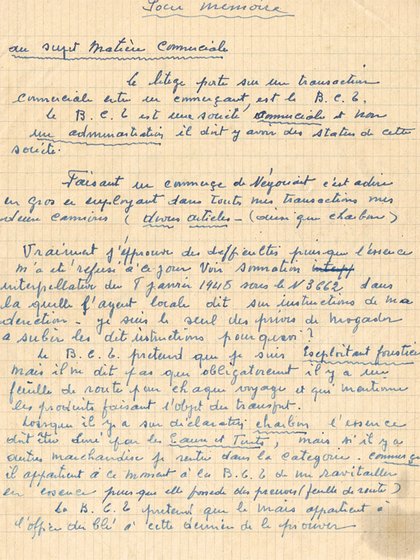 Pour Mémoire
au sujet Matière Commerciale
Le litege porte sur un transaction
commerciale entre un commerçant, est le B.C.T.
Le B.C.T est une société commerciale et non
un administration il doit y avoir des status de cette
société.
Faisant un commerge de Négociant c'est adire
en gros en employant dans toutes mes transactions mes
deux camions (divers articles - (ainsi que charbon)
Vraiment j'éprouve des difficultés puisque l'essence
m'a eté refusé à ce jour. Voir somation
interpellative du 8 janvier 1948 sous le N 3662 dans
la quelle l'agent locale dit sur instructions de ma
direction - je suis le seul des privés de Mogador
a subir les dit istructions pourquoi?
Le B.C.T pretend que je suis Exploitant forestier
mais il ne dit pas que obligatoirement il y a un
feuille de route pour chaque voyage et qui mentionne
les produits faisant l'objet du transport.
Lorsque il y a sur déclaration charbon l'essence
doit être livré par les Eaux et Forêts, mais si il y a
autres marchandise je rentre dans la categorie
il appartient à ce moment à la B.C.T de me ravitailler
en essence puis que elle possede des preuves (feuille de route)
La B.C.T pretend que le mais appartient à
l'office du blé à cette dernière de le prouver